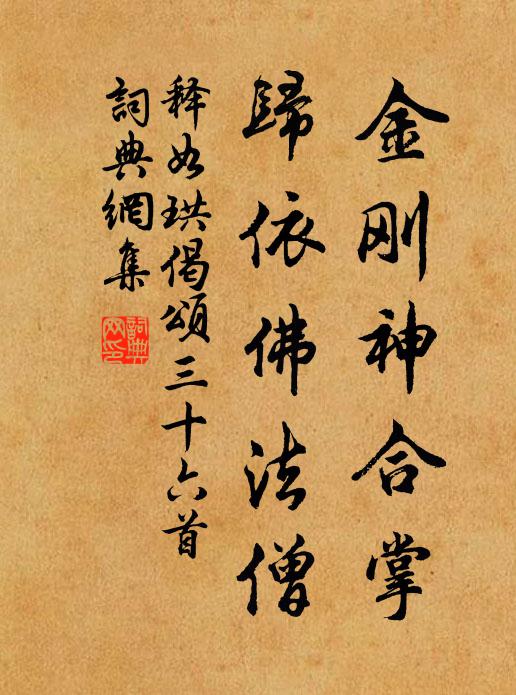 金刚神合掌
歸依佛法僧
释如珙偈頌三十六首
詞典網集
詞典网印